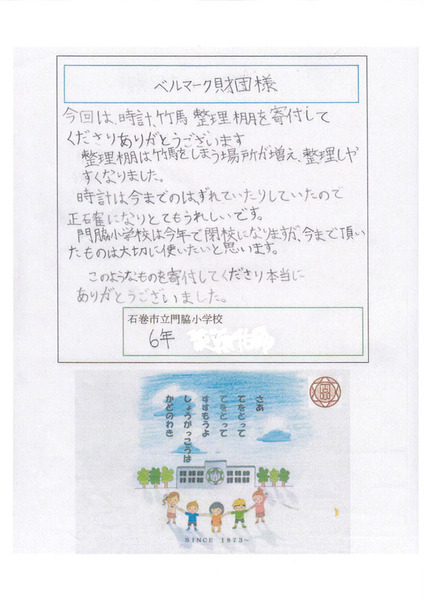 ベルマーク財団様
今回は、時計、竹馬、整理棚を寄付して
くださりありがとうございます
整理棚は竹馬をしまう場所が増え、整理しや
すくなりました。
時計は今までのはずれていたりしていたので
正確になりとてもうれしいです。
門脇小学校は今年で閉校になりますが、今まで頂い
たものは大切に使いたいと思います。
このようなものを寄付してくださり本当に
ありがとうございました。
石巻市立門脇小学校
6年
さあ
てをとって
てをとって
すすもうよ
しょうがっこうは
かどのわき
SINCE 1873~